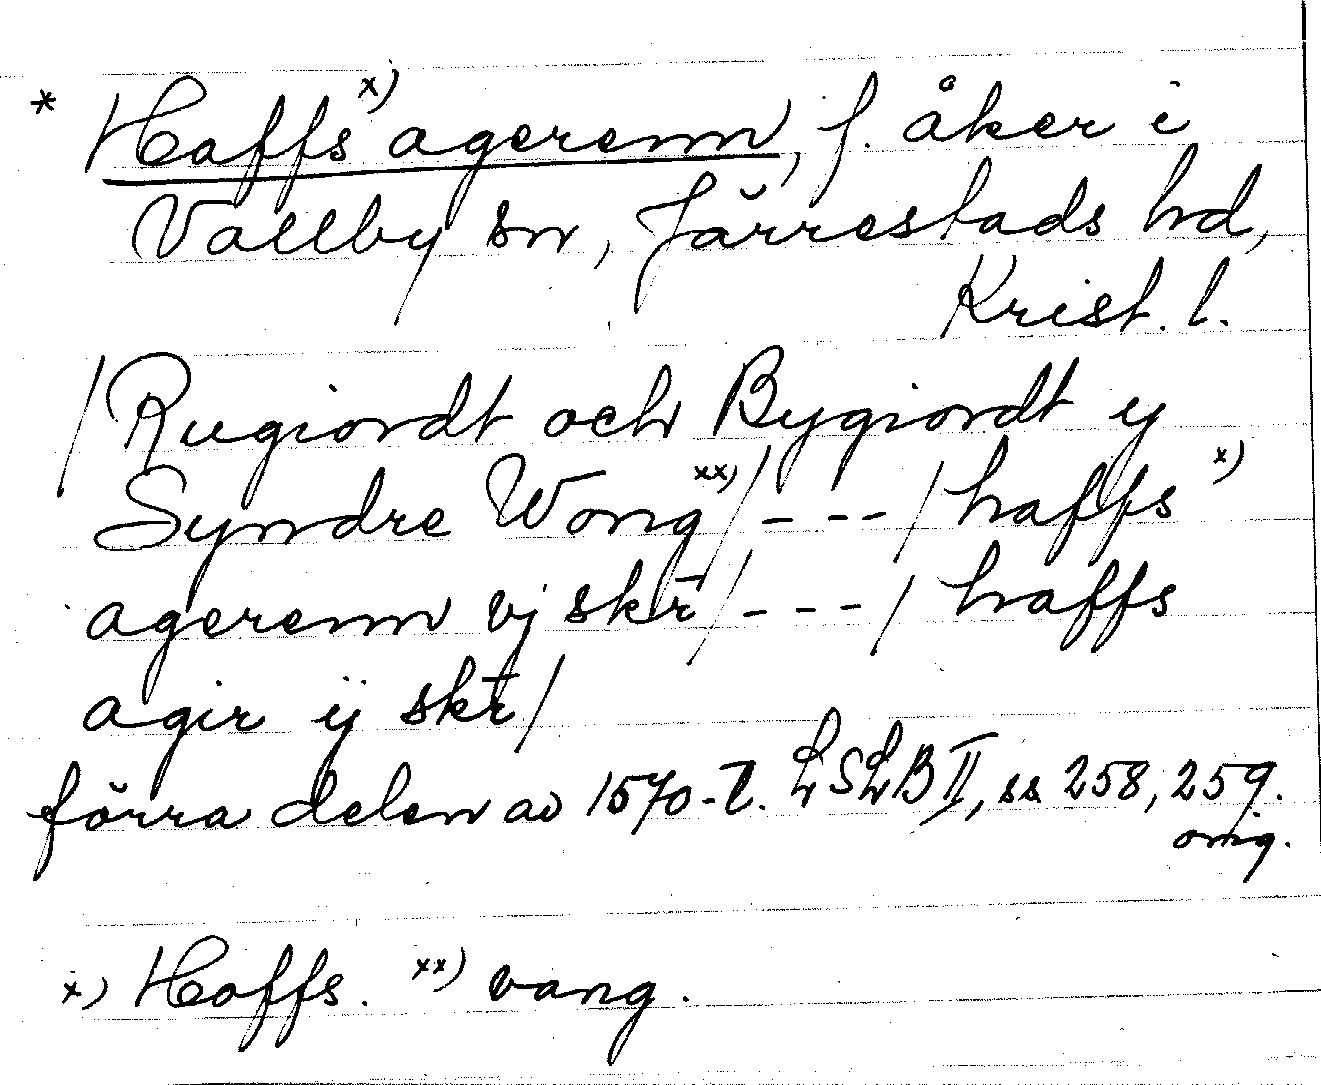 * Haffs x) agerenn, f. åker i
Vallby sn, Järrestads hd,
Krist. l.
/Rugiordt och Bygiordt ij
Syndre Wong xx)/ - - - / haffs x)
agerenn vj skr̄ / - - - / haffs
agir ij skr̄ /
förra delen av 1570-t. LSLB II, ss 258, 259.
orig.
x) Hoffs. xx) vang.